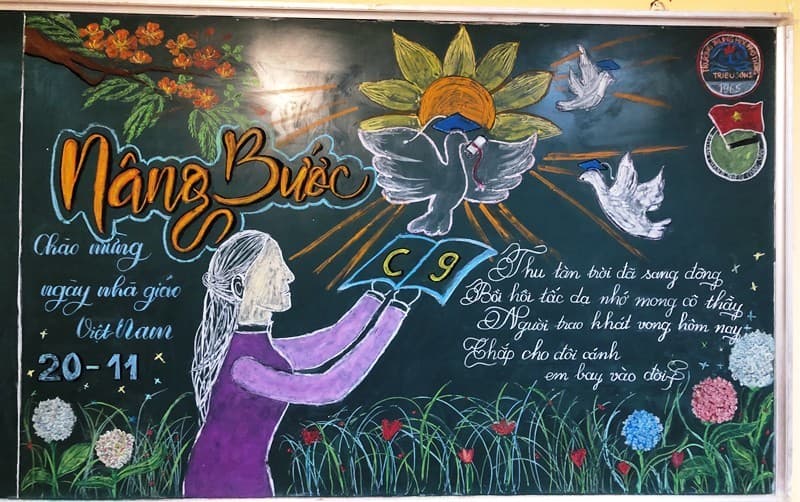 Nâng Bước
Chào mừng
ngày nhà giáo
Việt Nam
20-11
C 9
Thu tàn trời đã sang đông
Bồi hồi tấc dạ nhớ mong cô thầy
Người trao khát vọng hôm nay
Chắp cho đôi cánh
em bay vào đời
TRIỆU SƠN 2
1965